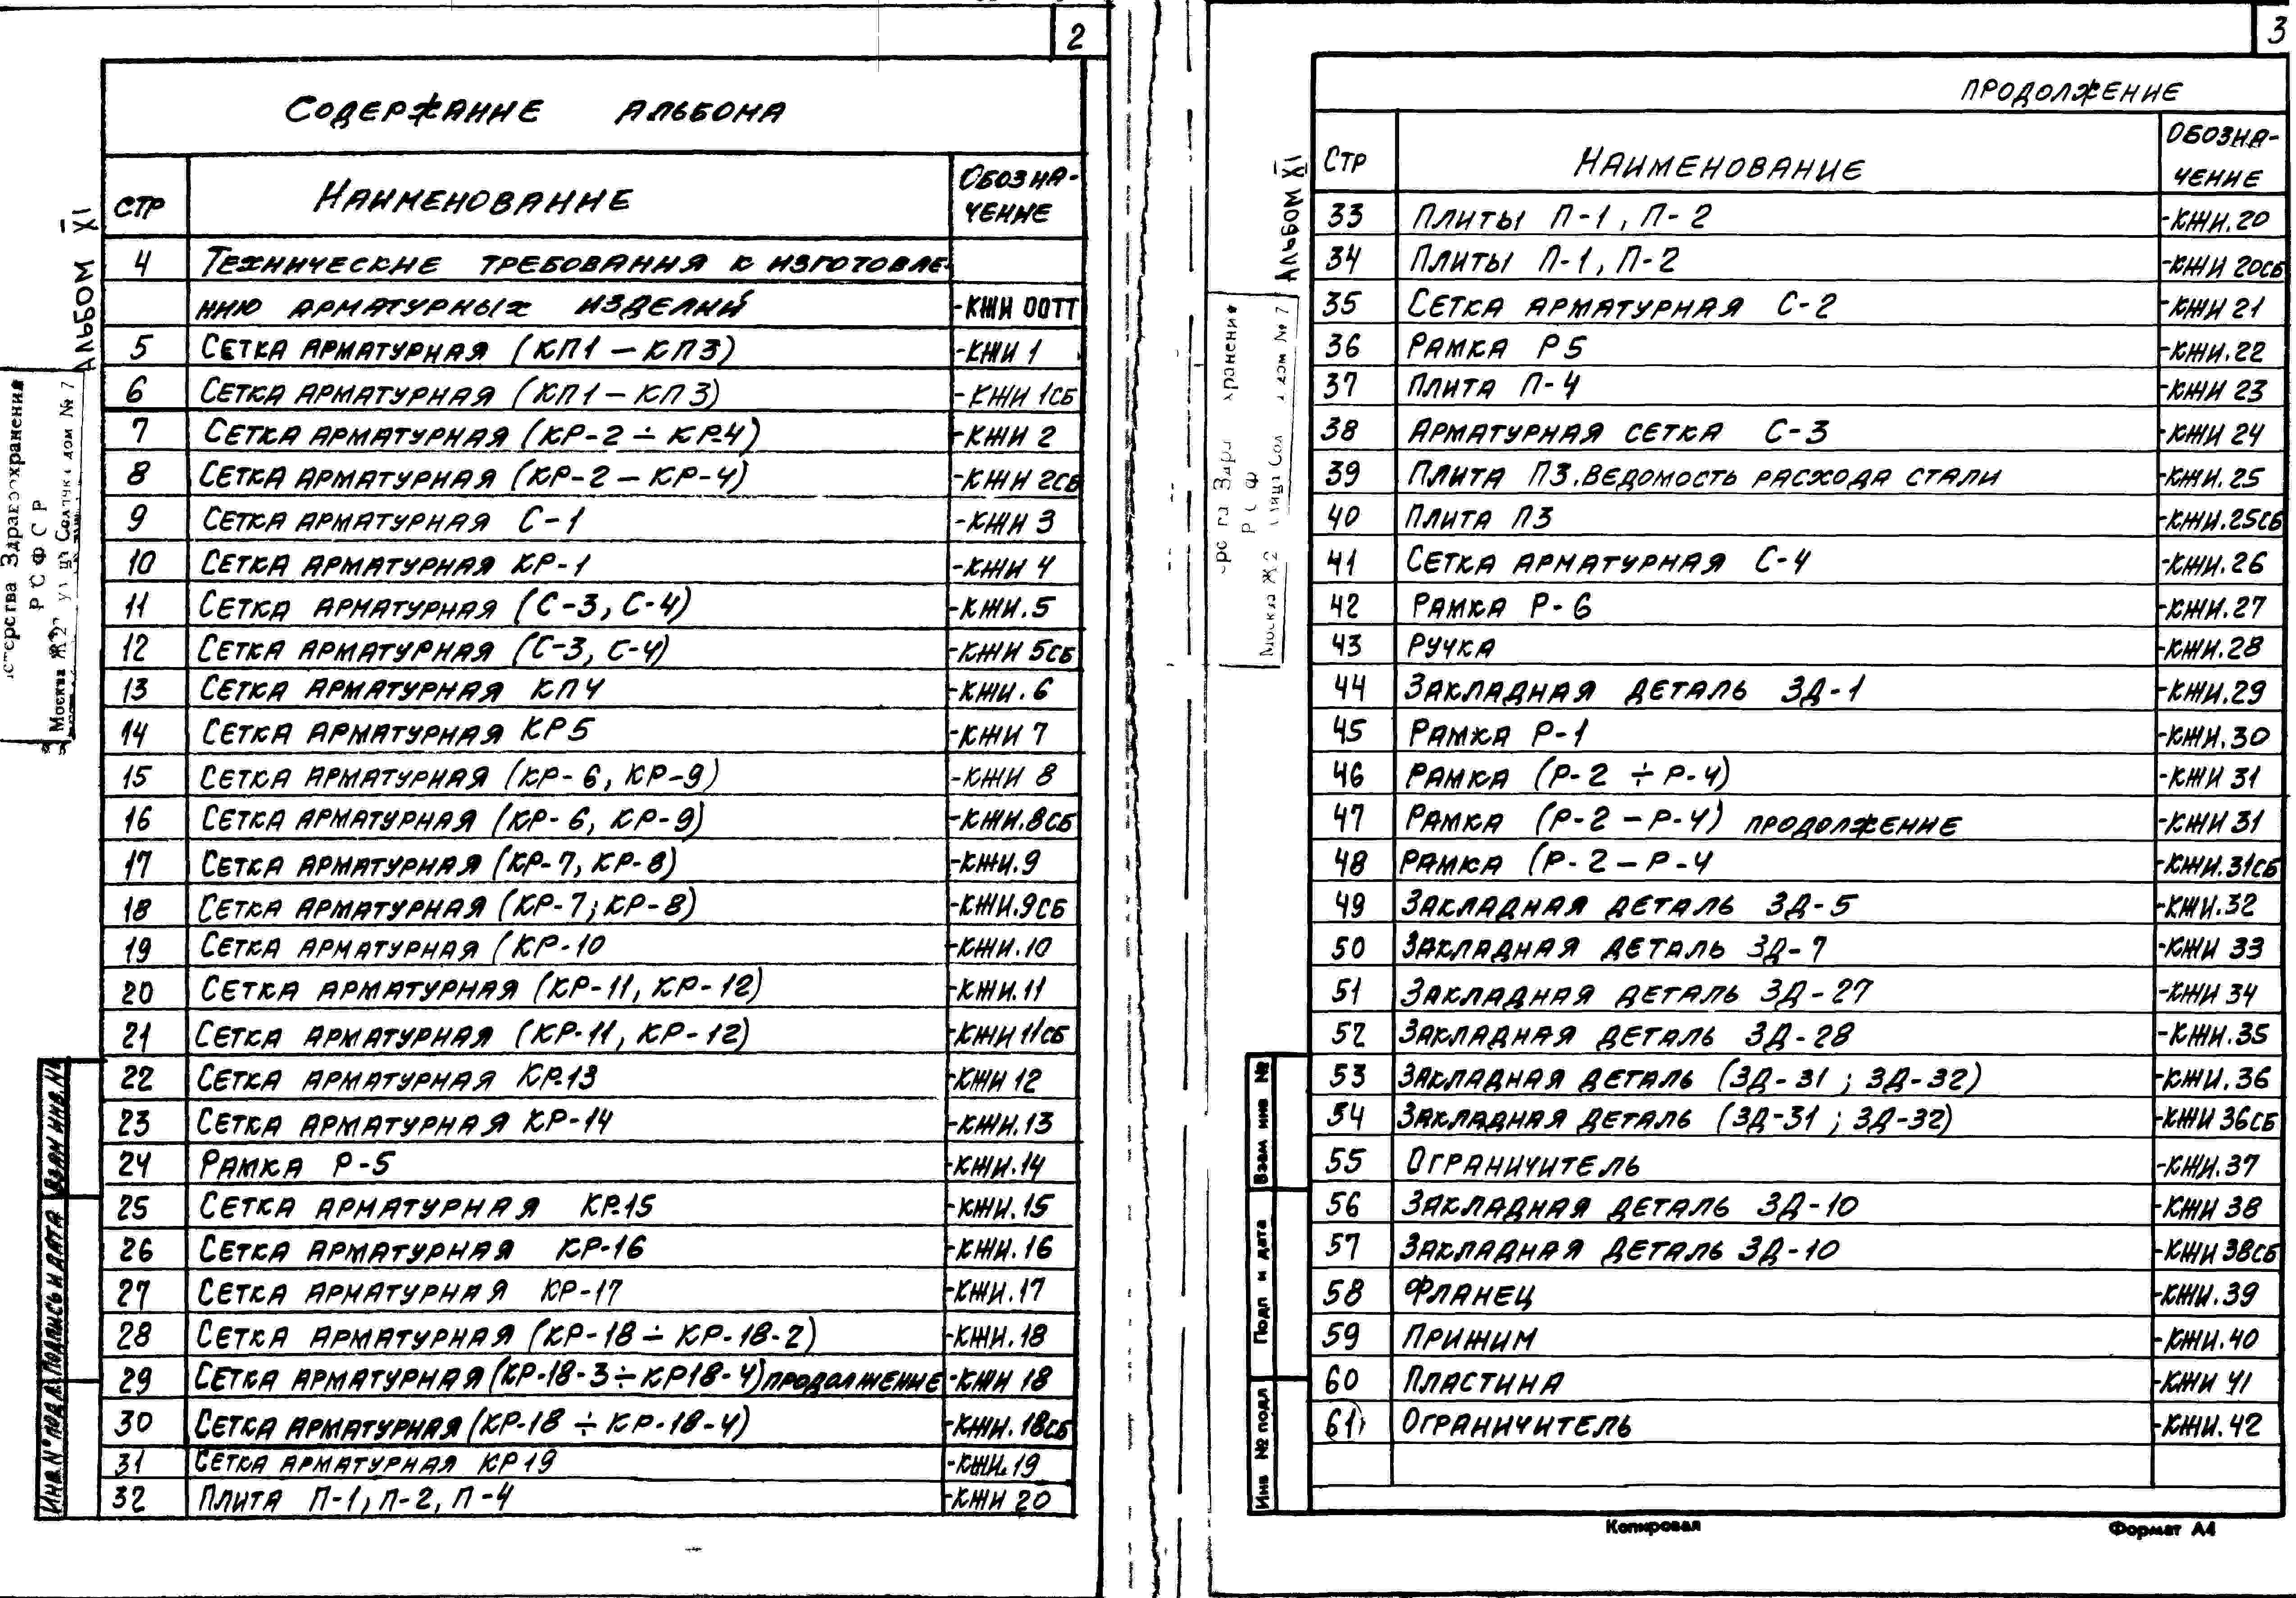 2
Содержание альбома
стр Наименование Обозна-
чение
4 Технические требования к изготовле-
нию арматурных изделий -КЖИ 00ТТ
5 Сетка арматурная (КП1 — КП3) -КЖИ 1
6 Сетка арматурная (КП1 — КП3) -КЖИ 1СБ
7 Сетка арматурная (КР-2 ÷ КР-4) -КЖИ 2
8 Сетка арматурная (КР-2 — КР-4) -КЖИ 2СБ
9 Сетка арматурная С-1 -КЖИ 3
10 Сетка арматурная КР-1 -КЖИ 4
11 Сетка арматурная (С-3, С-4) -КЖИ.5
12 Сетка арматурная (С-3, С-4) -КЖИ 5СБ
13 Сетка арматурная КП4 -КЖИ.6
14 Сетка арматурная КР5 -КЖИ 7
15 Сетка арматурная (КР-6, КР-9) -КЖИ 8
16 Сетка арматурная (КР-6, КР-9) -КЖИ.8СБ
17 Сетка арматурная (КР-7, КР-8) -КЖИ.9
18 Сетка арматурная (КР-7; КР-8) -КЖИ.9СБ
19 Сетка арматурная (КР-10 -КЖИ.10
20 Сетка арматурная (КР-11, КР-12) -КЖИ.11
21 Сетка арматурная (КР-11, КР-12) -КЖИ 11СБ
22 Сетка арматурная КР-13 -КЖИ 12
23 Сетка арматурная КР-14 -КЖИ.13
24 Рамка Р-5 -КЖИ.14
25 Сетка арматурная КР-15 -КЖИ.15
26 Сетка арматурная КР-16 -КЖИ.16
27 Сетка арматурная КР-17 -КЖИ.17
28 Сетка арматурная (КР-18 ÷ КР-18-2) -КЖИ.18
29 Сетка арматурная (КР-18-3 ÷ КР18-4) продолжение -КЖИ 18
30 Сетка арматурная (КР-18 ÷ КР-18-4) -КЖИ.18СБ
31 Сетка арматурная КР19 -КЖИ.19
32 Плита П-1, П-2, П-4 -КЖИ 20
Альбом XI
Здравоохранения
РСФСР
Москва
дом № 7
Взам инв. №
Подпись и дата
Инв. № подл
3
продолжение
Стр Наименование Обозна-
чение
33 Плиты П-1, П-2 -КЖИ.20
34 Плиты П-1, П-2 -КЖИ 20СБ
35 Сетка арматурная С-2 -КЖИ 21
36 Рамка Р5 -КЖИ.22
37 Плита П-4 -КЖИ 23
38 Арматурная сетка С-3 -КЖИ 24
39 Плита П3. Ведомость расхода стали -КЖИ.25
40 Плита П3 -КЖИ.25СБ
41 Сетка арматурная С-4 -КЖИ.26
42 Рамка Р-6 -КЖИ.27
43 Ручка -КЖИ.28
44 Закладная деталь ЗД-1 -КЖИ.29
45 Рамка Р-1 -КЖИ.30
46 Рамка (Р-2 ÷ Р-4) -КЖИ 31
47 Рамка (Р-2 — Р-4) продолжение -КЖИ 31
48 Рамка (Р-2 — Р-4 -КЖИ.31СБ
49 Закладная деталь ЗД-5 -КЖИ.32
50 Закладная деталь ЗД-7 -КЖИ 33
51 Закладная деталь ЗД-27 -КЖИ 34
52 Закладная деталь ЗД-28 -КЖИ.35
53 Закладная деталь (ЗД-31; ЗД-32) -КЖИ.36
54 Закладная деталь (ЗД-31; ЗД-32) -КЖИ 36СБ
55 Ограничитель -КЖИ.37
56 Закладная деталь ЗД-10 -КЖИ 38
57 Закладная деталь ЗД-10 -КЖИ 38СБ
58 Фланец -КЖИ.39
59 Прижим -КЖИ.40
60 Пластина -КЖИ 41
61 Ограничитель -КЖИ.42
Альбом XI
РСФ
Москва
№ 7
Взам инв №
Подп и дата
Инв № подл
Копировал Формат А4